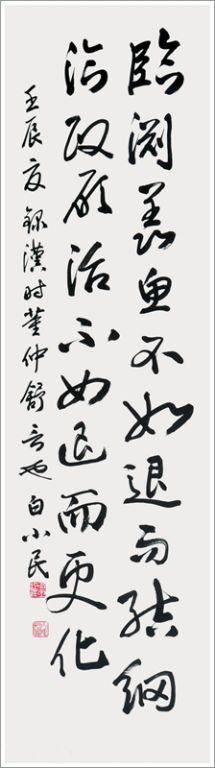 臨淵羨魚不如退而結網
临政願治不如退而更化
壬辰夏録漢时董仲舒言也白小民